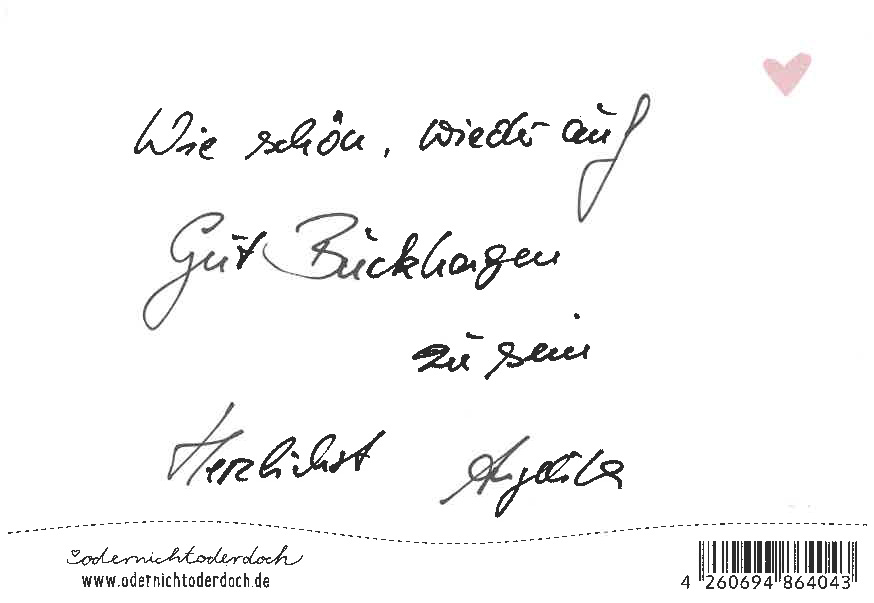 Wie schön, wieder auf
Gut Buckhagen
zu sein
Herzlichst Angelika
odernichtoderdoch
www.odernichtoderdoch.de
4 260694 864043